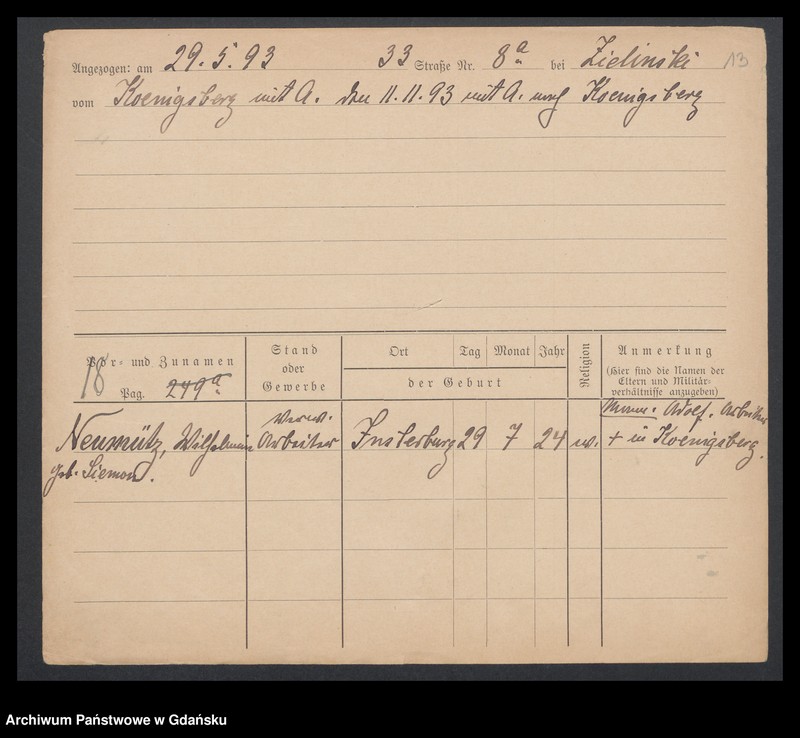 Angezogen: am 29. 5. 93 33 Straße Nr. 8a bei Zielinski 13
vom Koenigsberg mit A. den 11.11.93 mit A. nach Koenigsberg
Vor- und Zunamen
18 Pag. 249a
Stand
oder
Gewerbe
Ort Tag Monat Jahr
der Geburt
Religion
Anmerkung
(Hier sind die Namen der
Eltern und Militär-
verhältnisse anzugeben)
Neumütz, Wilhelmine
geb. Siemon.
Verw.
Arbeiter
Insterburg 29 7 24 ev.
Mann: Adolf, Arbeiter
+ in Koenigsberg.
Archiwum Państwowe w Gdańsku